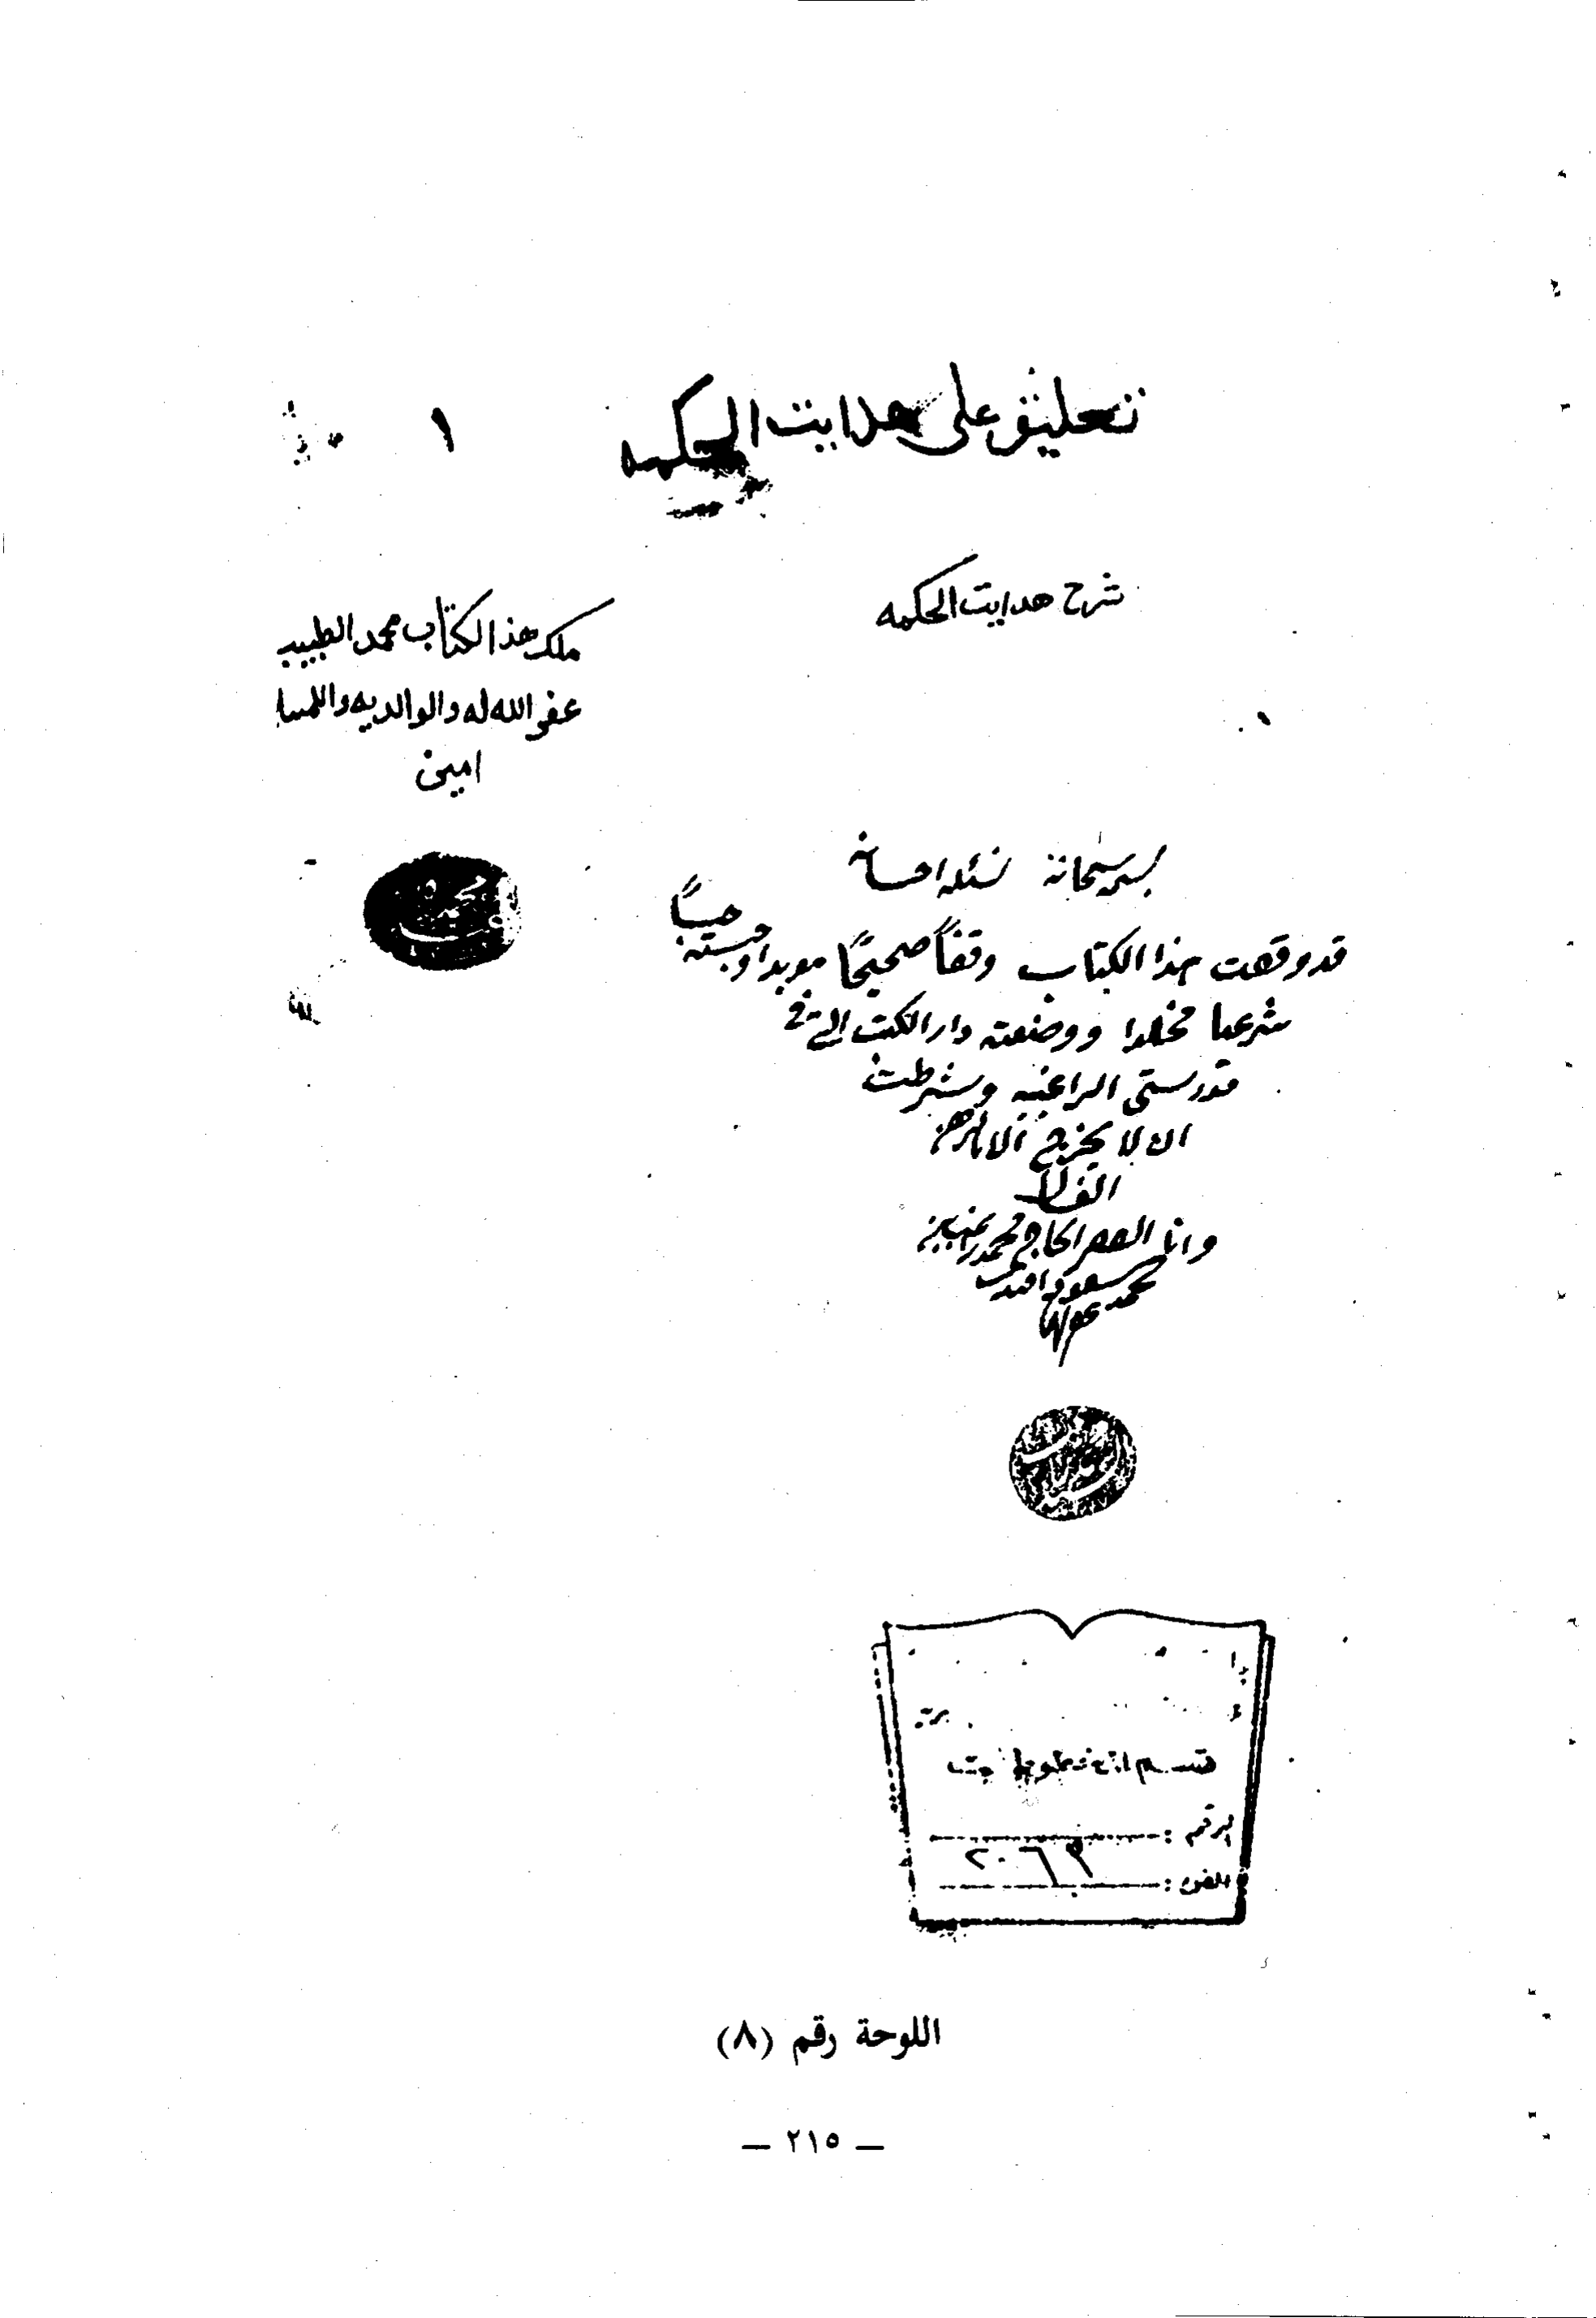 تعليق على هدايت الحكمه
١
شرح هدايت الحكمه
ملك هذا الكتاب محمد الطبيب
عفر الله له والوالديه
امين
سبحانه نسئله احسانه
قد وقفت هذا الكتاب وقفاً صحيحاً موبدا وحبسته حبساً
شرعيا مخلدا ووضعته دار الكتب التى فى
مدرستى الراغبيه وشرطت
ان لا يخرج الا
وانا الفقير الحاج محمد
محمد مسعود افندى
قسم المخطوطات
الرقم :
٢٠٦٢
الفن :
اللوحة رقم (٨)
— ٢١٥ —